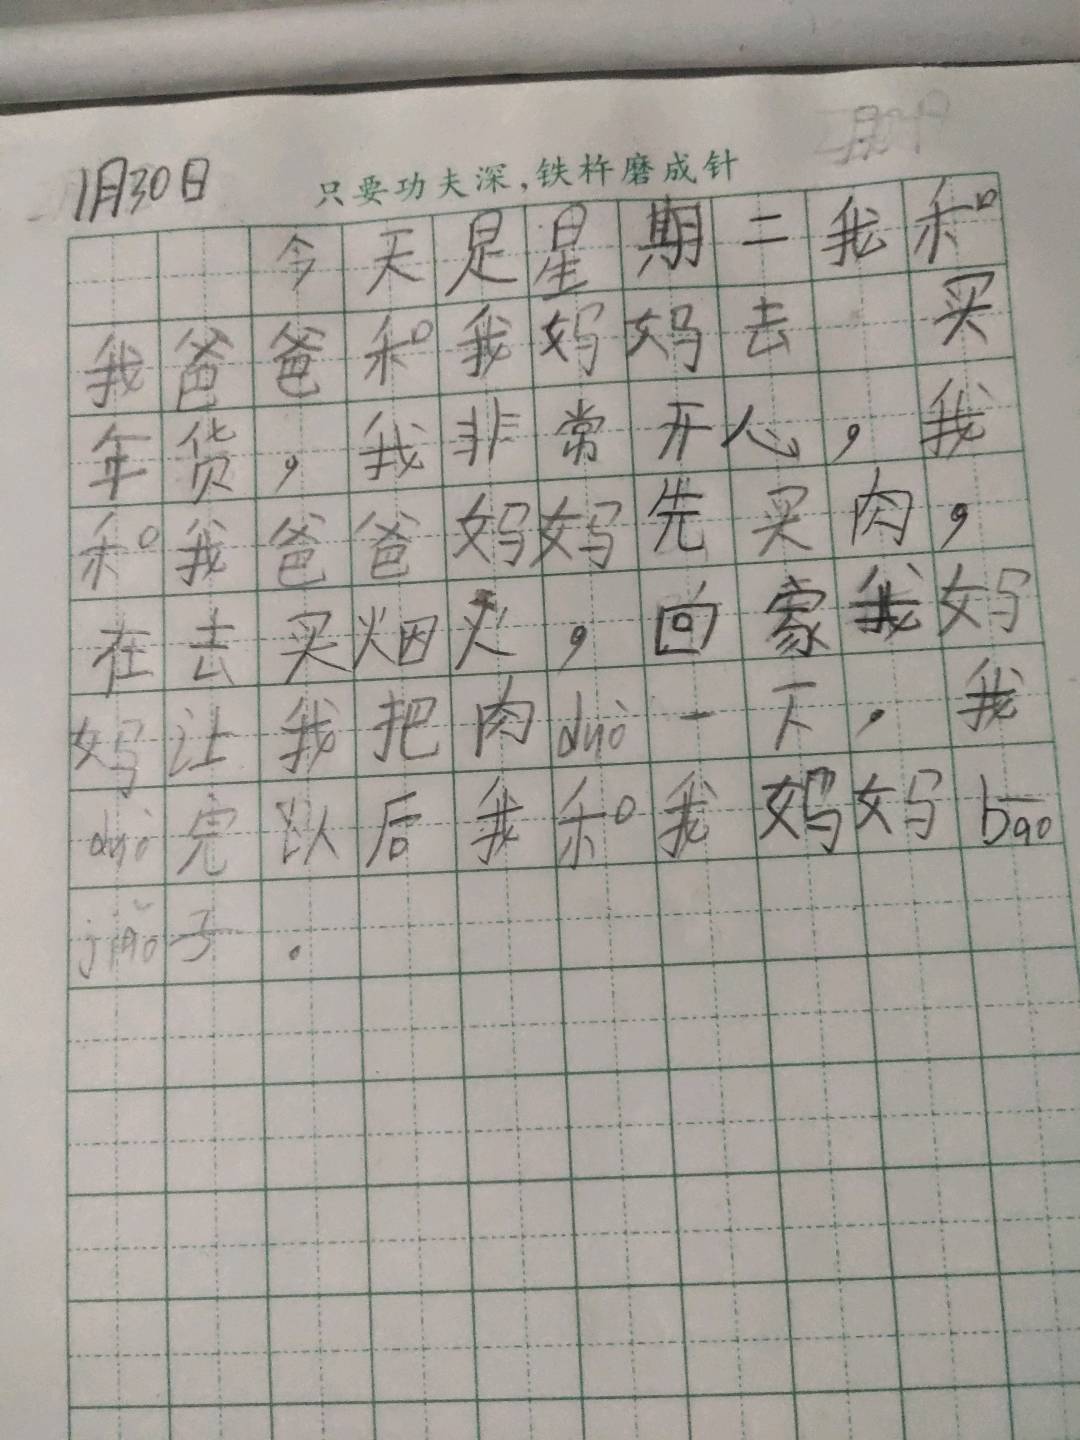 1月30日
只要功夫深,铁杵磨成针
今天是星期二我和
我爸爸和我妈妈去买
年货,我非常开心,我
和我爸爸妈妈先买肉,
在去买烟火,回家我妈
妈让我把肉duò一下,我
duò完以后我和我妈妈bāo
jiǎo子。